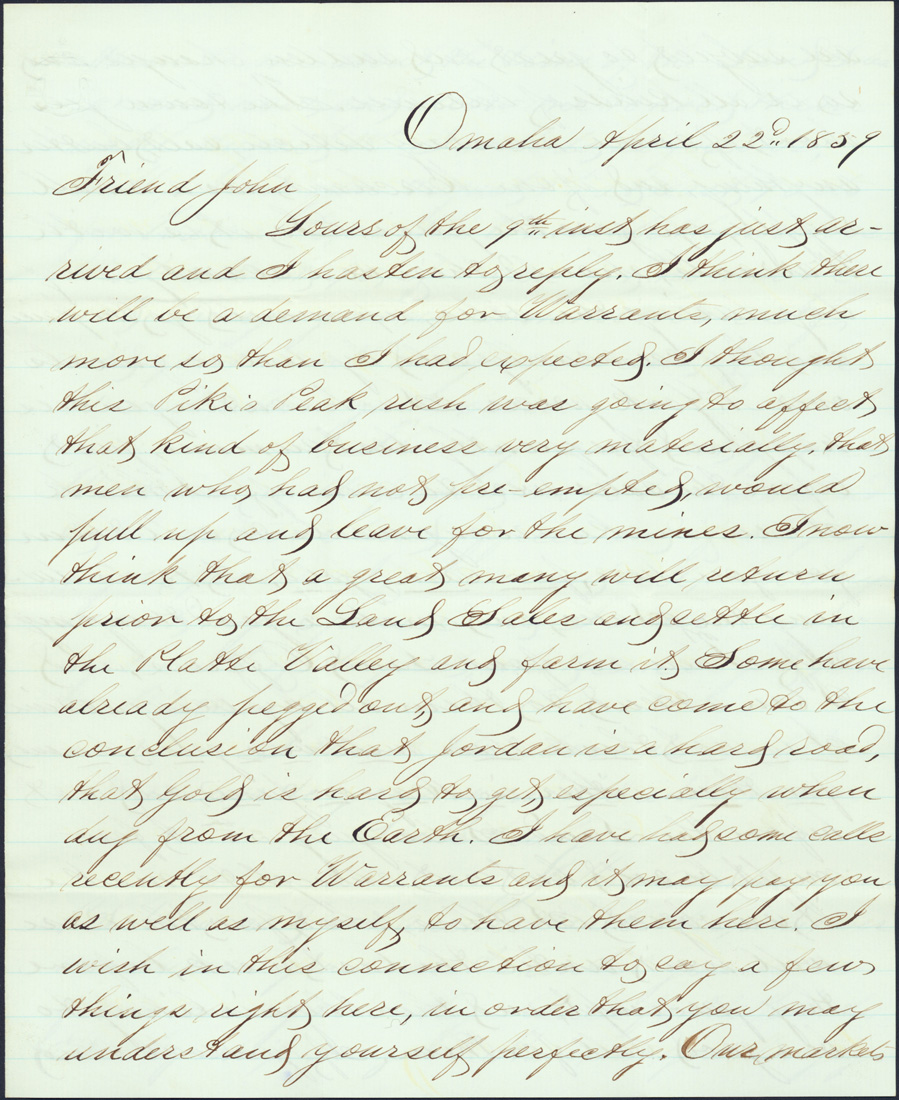 Omaha April 22d. 1859
Friend John
Yours of the 9th inst, has just ar-
rived and I hasten to reply. I think there
will be a demand for Warrants, much
more so, than I had expected. I thought
this Pike's Peak rush was going to affect
that kind of business very materially, that
men who had not pre-empted, would
pull up and leave for the mines. I now
think that a great many will return
prior to the Land Sales and settle in
the Platte Valley and farm it, Some have
already pegged out, and have come to the
conclusion that Jordan is a hard road,
that Gold is hard to get, especially when
dug from the Earth. I have had some calls
recently for Warrants and it may pay you
as well as myself, to have them here. I
wish in this connection to say a few
things right here, in order that you may
understand yourself perfectly. Our markets